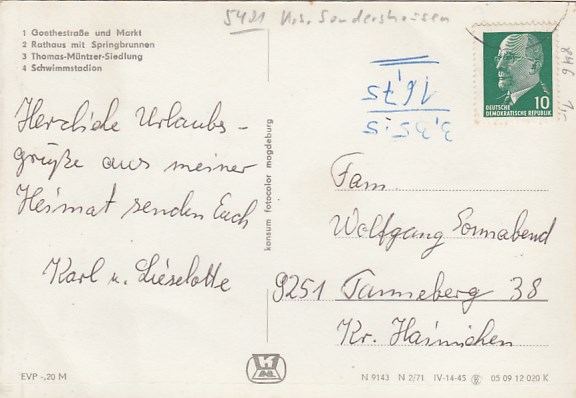 5421 Krs. Sondershausen
1 Goethestraße und Markt
2 Rathaus mit Springbrunnen
3 Thomas-Müntzer-Siedlung
4 Schwimmstadion
Herzliche Urlaubs-
grüße aus meiner
Heimat senden Euch
Karl u. Lieselotte
konsum fotocolor magdeburg
3,35:5
16,75
DEUTSCHE
DEMOKRATISCHE REPUBLIK
10
Fam.
Wolfgang Sonnabend
9251 Tanneberg 38
Kr. Hainichen
EVP -,20 M
N 9143 N 2/71 IV-14-45 05 09 12 020 K